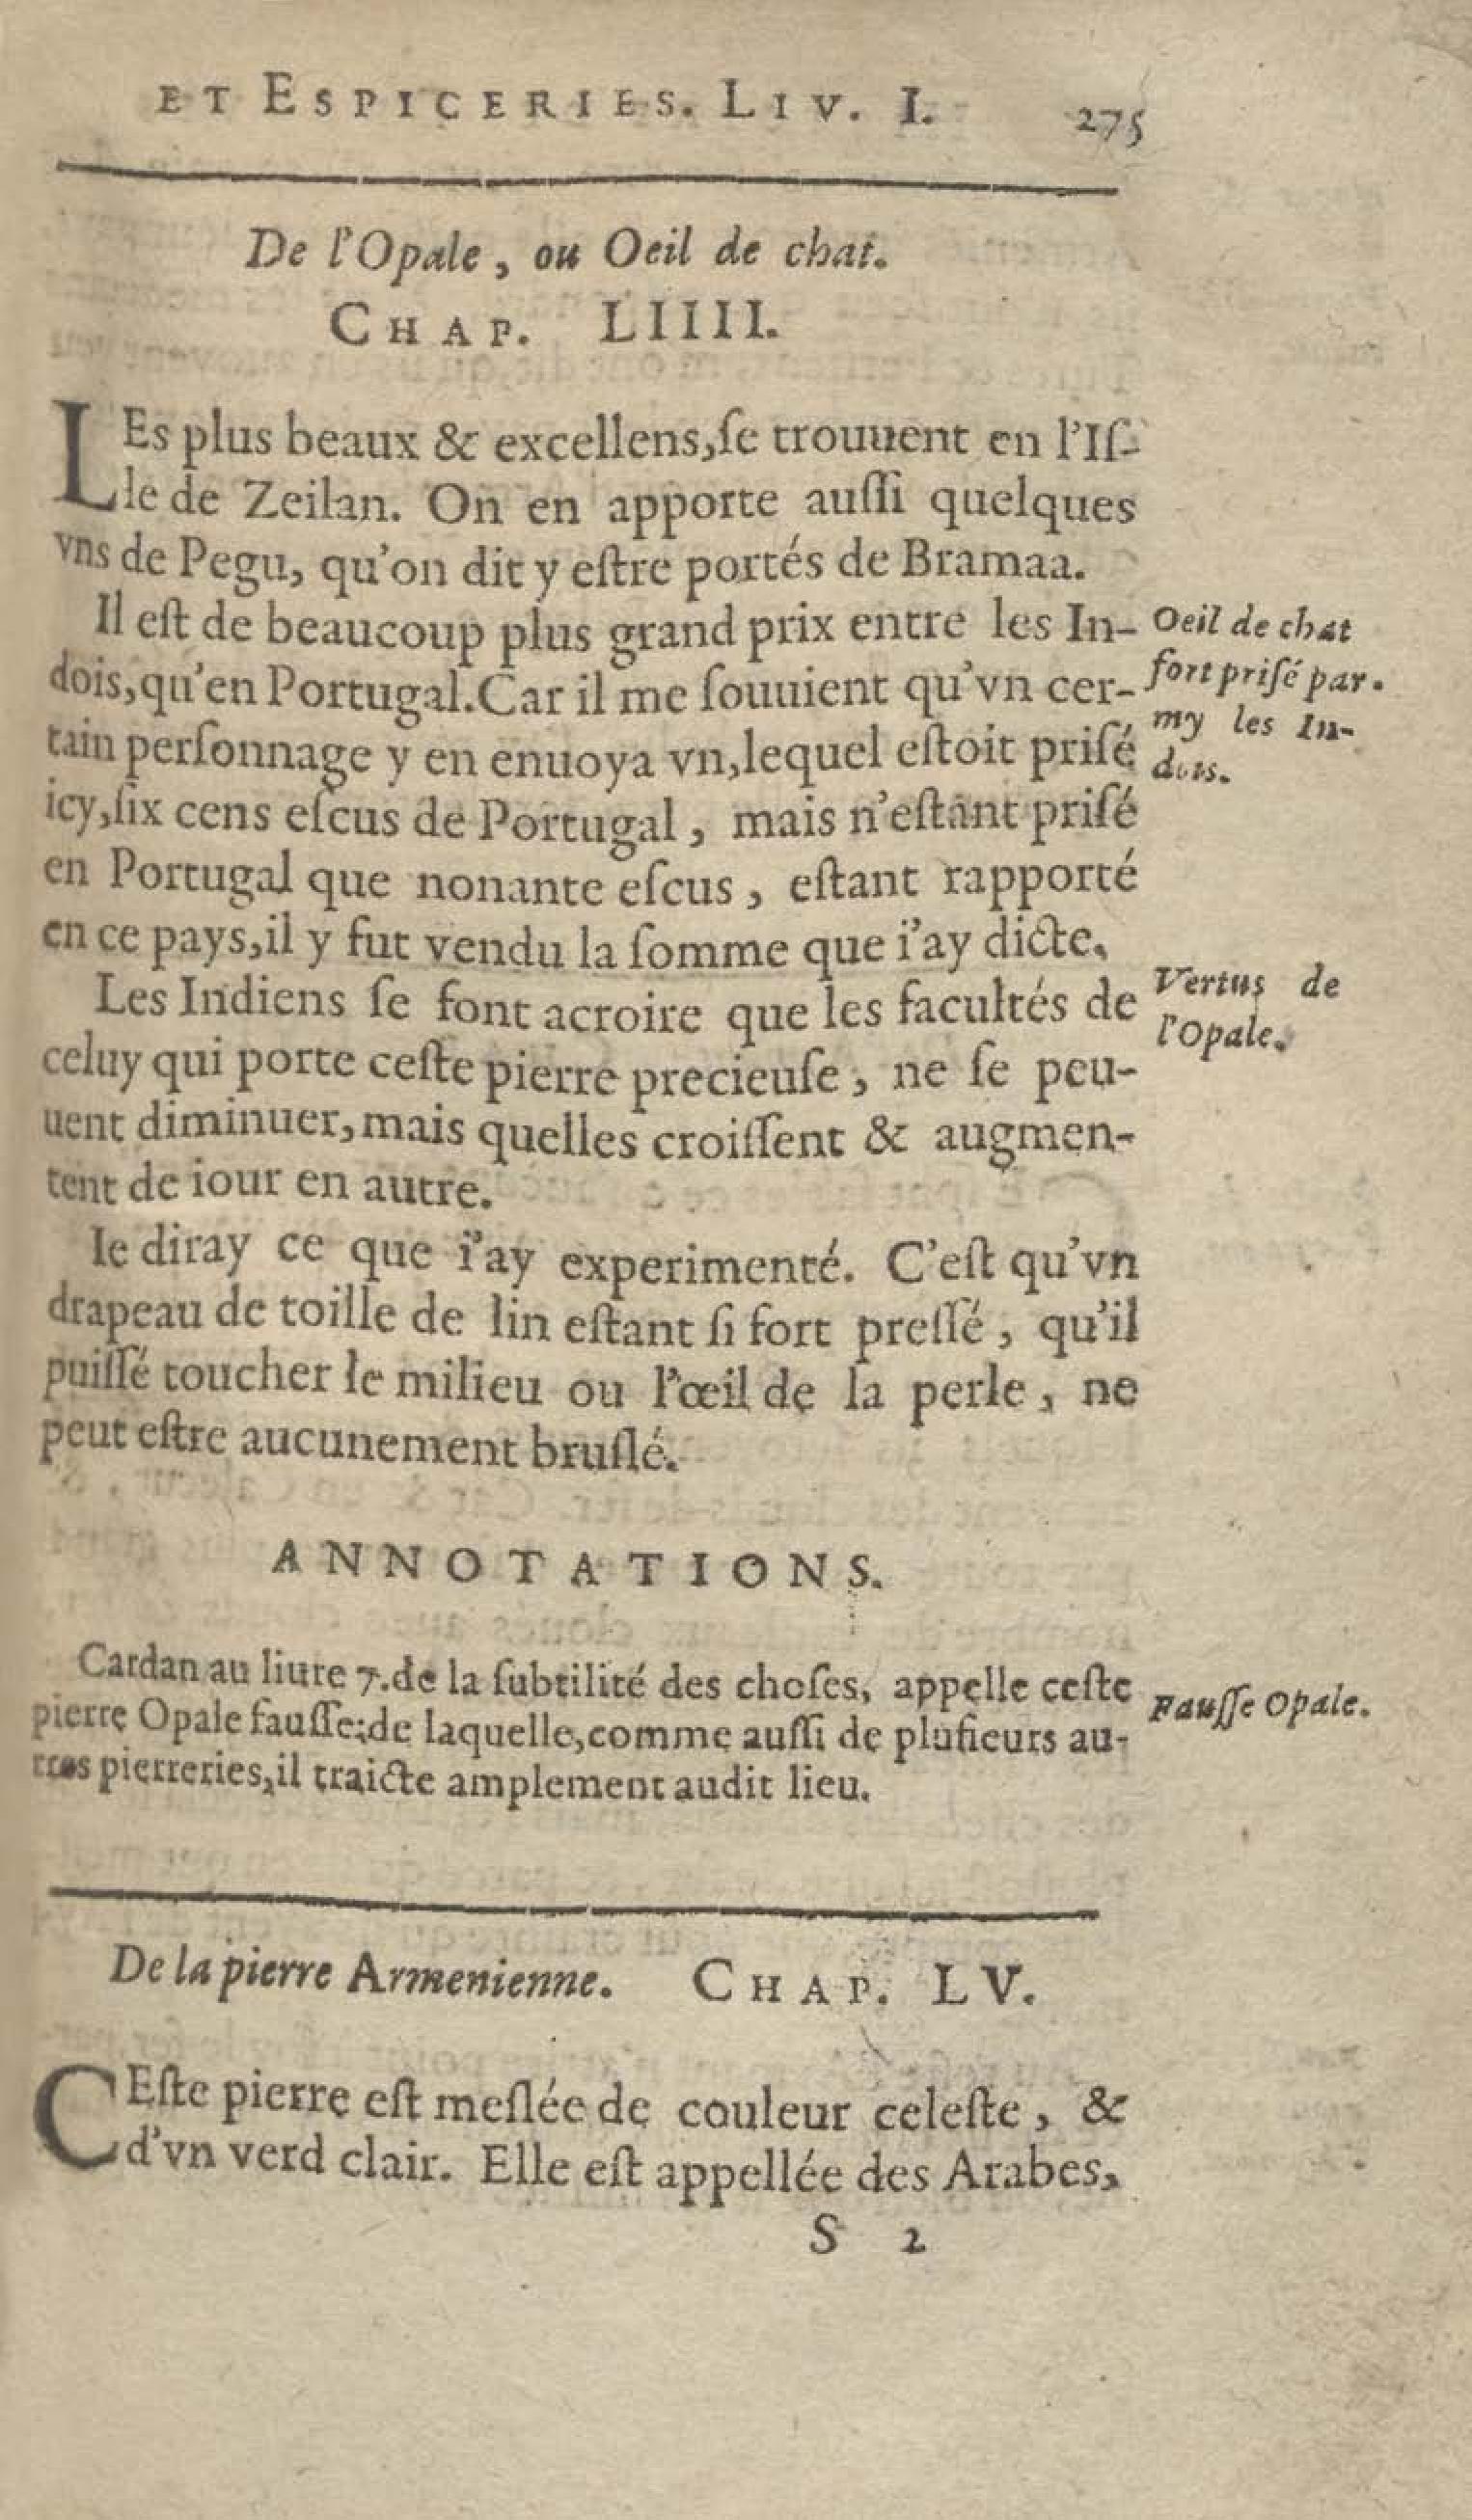 ET ESPICERIES. LIV. I. 275
De l'Opale, ou Oeil de chat.
CHAP. LIIII.
LEs plus beaux & excellens, ſe trouuent en l'Iſ-
le de Zeilan. On en apporte auſſi quelques
vns de Pegu, qu'on dit y eſtre portés de Bramaa.
Il eſt de beaucoup plus grand prix entre les In-
dois, qu'en Portugal. Car il me ſouuient qu'vn cer-
tain perſonnage y en enuoya vn, lequel eſtoit priſé
icy, ſix cens eſcus de Portugal, mais n'eſtant priſé
en Portugal que nonante eſcus, eſtant rapporté
en ce pays, il y fut vendu la ſomme que i'ay dicte.
Oeil de chat
fort priſé par.
my les In-
dois.
Les Indiens ſe font acroire que les facultés de
celuy qui porte ceſte pierre precieuſe, ne ſe peu-
uent diminuer, mais quelles croiſſent & augmen-
tent de iour en autre.
Vertus de
l'Opale.
Ie diray ce que i'ay experimenté. C'eſt qu'vn
drapeau de toille de lin eſtant ſi fort preſſé, qu'il
puiſſé toucher le milieu ou l'œil de la perle, ne
peut eſtre aucunement bruſlé.
ANNOTATIONS.
Cardan au liure 7. de la ſubtilité des choſes, appelle ceſte
pierre Opale fauſſe; de laquelle, comme auſſi de pluſieurs au-
tres pierreries, il traicte amplement audit lieu.
Fauſſe Opale.
De la pierre Armenienne. CHAP. LV.
CEſte pierre eſt meſlée de couleur celeſte, &
d'vn verd clair. Elle eſt appellée des Arabes,
S 2